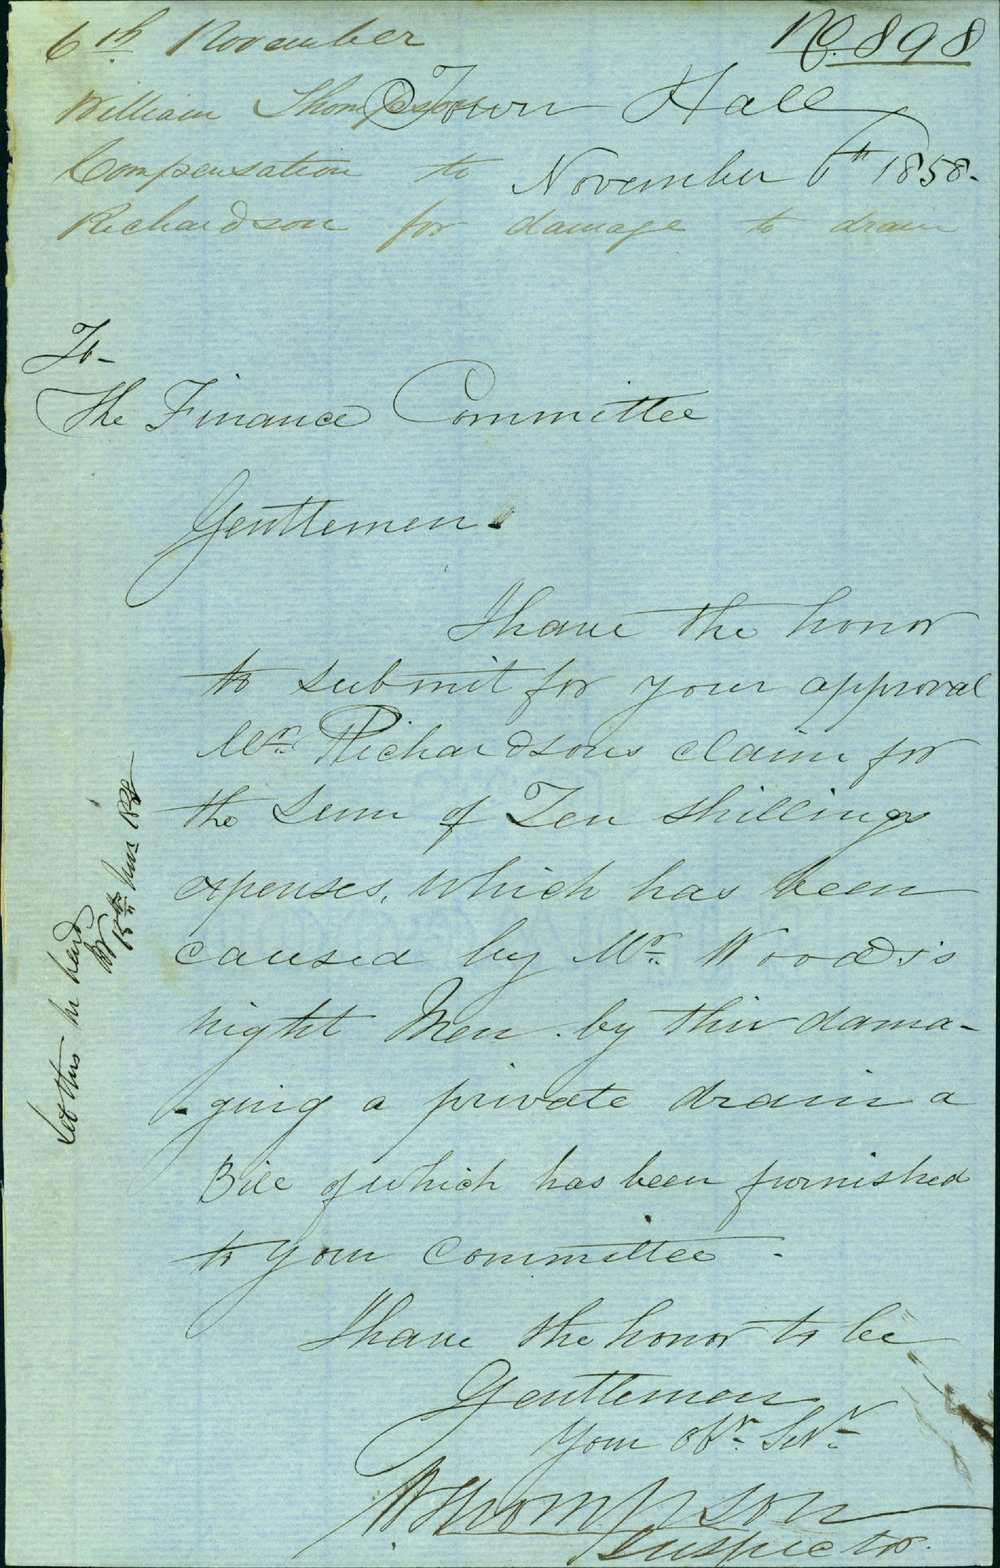 No. 898
6th November
William Thompson
Compensation to
Richardson for damage to drain
Town Hall
November 6th 1858.
To
The Finance Committee
Gentlemen.
I have the honor
to submit for your approval
Mr. Richardsons claim for
the Sum of Ten Shillings
expenses, which has been
caused by Mr. Woods's
night Men by thir dama-
-ging a private drain a
Bill of which has been furnished
to your Committee.
I have the honor to be
Gentlemen
Your Obt. Sert.
W Thompson
Inspector.
Let this be heard
15th Novr 1858